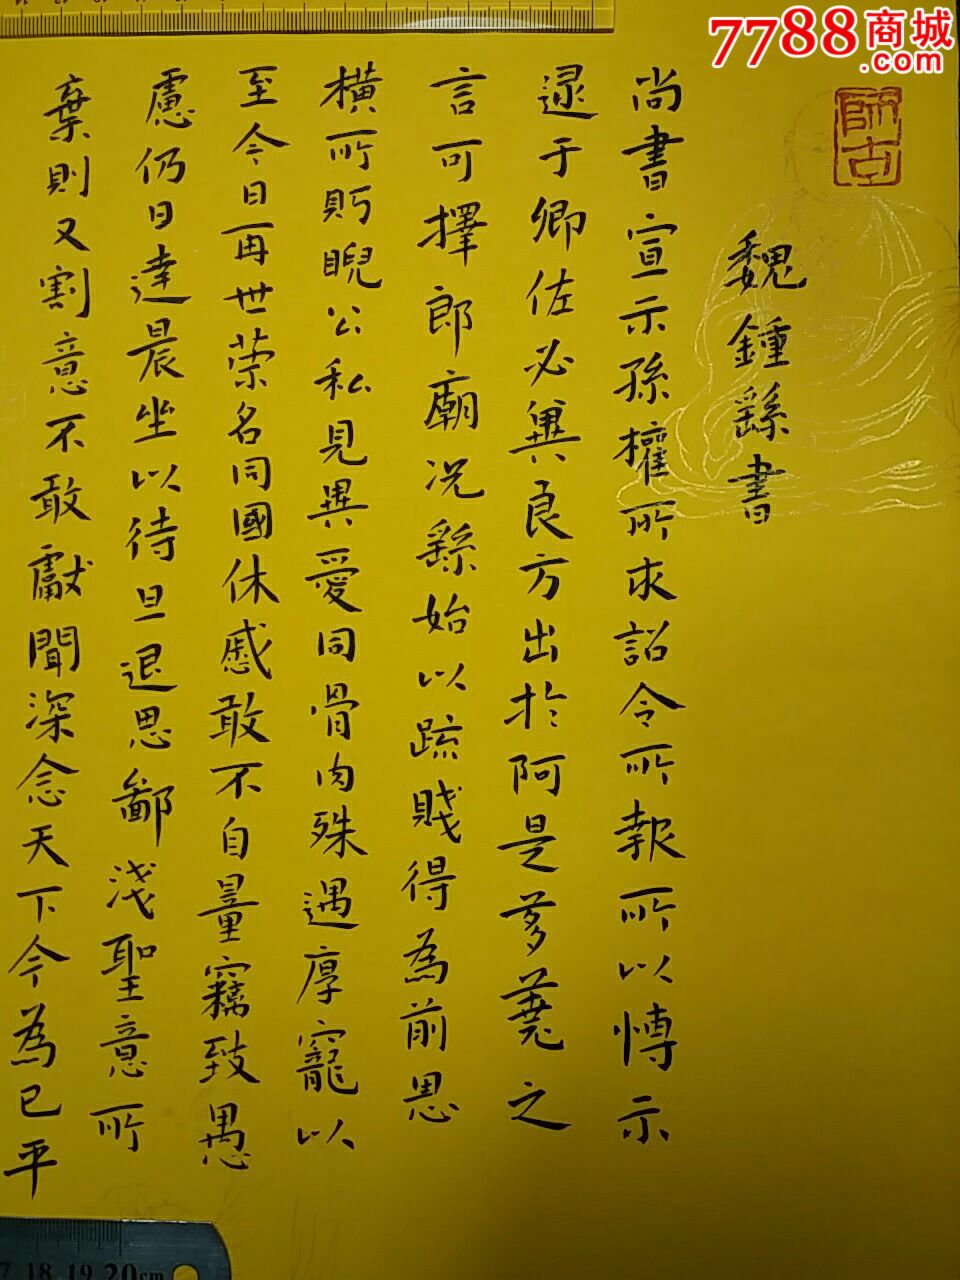 7788商城
.com
師古
魏鍾繇書
尚書宣示孫權所求詔令所報所以博示
逮于卿佐必冀良方出於阿是芻蕘之
言可擇郎廟况繇始以疏賤得為前恩
橫所眄睨公私見異愛同骨肉殊遇厚寵以
至今日再世荣名同國休慼敢不自量竊致愚
慮仍日達晨坐以待旦退思鄙淺聖意所
棄則又割意不敢獻聞深念天下今為已平
17 18 19 20cm